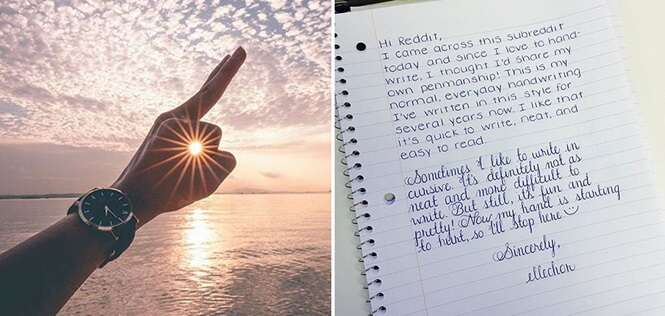 Hi Reddit,
I came across this subreddit
today and since I love to hand-
write, I thought I'd share my
own penmanship! This is my
normal, everyday handwriting
I've written in this style for
several years now. I like that
it's quick to write, neat, and
easy to read.
Sometimes I like to write in
cursive. It's definitely not as
neat and more difficult to
write. But still, it's fun and
pretty! Now my hand is starting
to hurt, so I'll stop here
Sincerely,
ellechon